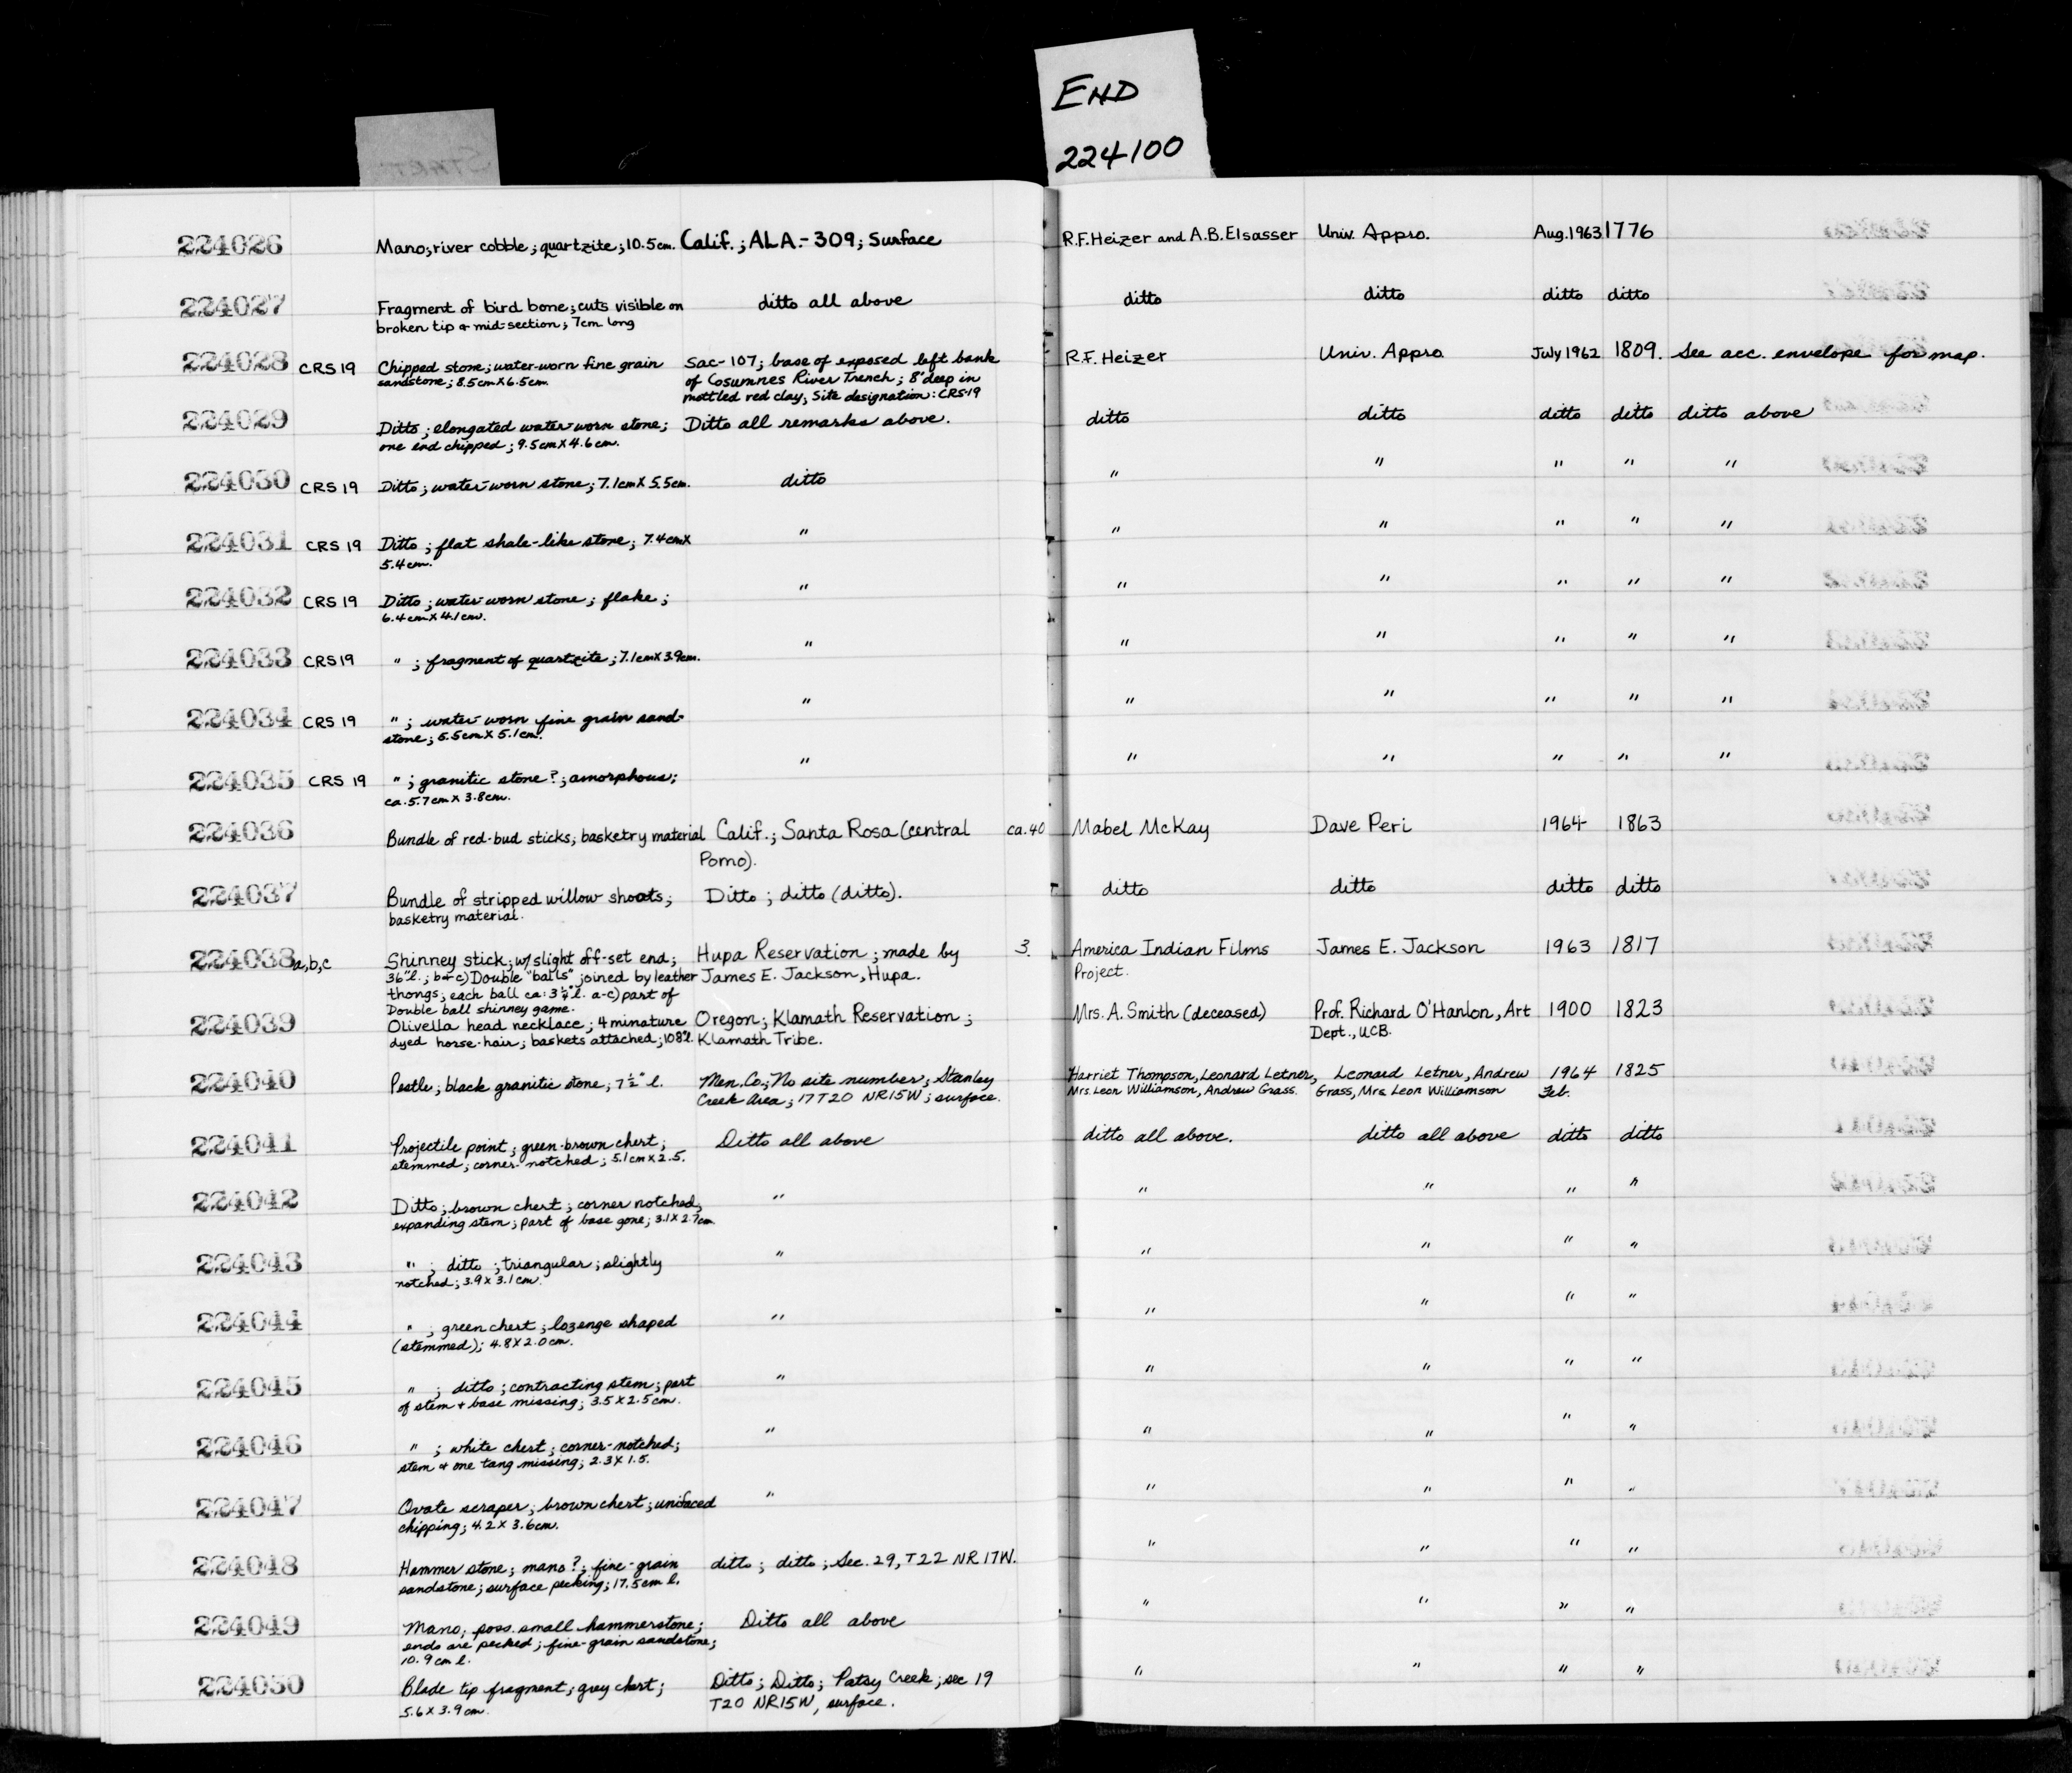 START
END
224100
224026 Mano; river cobble; quartzite; 10.5cm. Calif.; ALA.-309; Surface R.F. Heizer and A.B. Elsasser Univ. Appro. Aug. 1963 1776
224027 Fragment of bird bone; cuts visible on ditto all above ditto ditto ditto ditto
broken tip & mid-section; 7cm long
224028 CRS 19 Chipped stone; water-worn fine grain Sac-107; base of exposed left bank R.F. Heizer Univ. Appro July 1962 1809. See acc. envelope for map.
sandstone; 8.5cm X 6.5cm. of Cosumnes River Trench; 8' deep in
mottled red clay, Site designation: CRS-19
224029 Ditto; elongated water-worn stone; Ditto all remarks above. ditto ditto ditto ditto ditto above
one end chipped; 9.5cm X 4.6cm.
224030 CRS 19 Ditto; water-worn stone; 7.1cm X 5.5cm. ditto " " " " "
224031 CRS 19 Ditto; flat shale-like stone; 7.4cm X " " " " " "
5.4cm.
224032 CRS 19 Ditto; water-worn stone; flake; " " " " " "
6.4cm X 4.1cm.
224033 CRS 19 " ; fragment of quartzite; 7.1cm X 3.9cm. " " " " " "
224034 CRS 19 " ; water-worn fine grain sand- " " " " " "
stone; 5.5cm X 5.1cm.
224035 CRS 19 " ; granitic stone?; amorphous; " " " " " "
ca. 5.7cm X 3.8cm.
224036 Bundle of red-bud sticks; basketry material Calif.; Santa Rosa (central ca. 40 Mabel McKay Dave Peri 1964 1863
Pomo).
224037 Bundle of stripped willow shoots; Ditto; ditto (ditto). ditto ditto ditto ditto
basketry material.
224038 a,b,c Shinney stick; w/ slight off-set end; Hupa Reservation; made by 3. America Indian Films James E. Jackson 1963 1817
36" l.; b+c) Double "balls" joined by leather James E. Jackson, Hupa. Project.
thongs; each ball ca. 3 1/4" l. a-c) part of
Double ball shinney game.
224039 Olivella head necklace; 4 minature Oregon; Klamath Reservation; Mrs. A. Smith (deceased) Prof. Richard O'Hanlon, Art 1900 1823
dyed horse-hair; baskets attached; 108 l. Klamath Tribe. Dept., UCB.
224040 Pestle; black granitic stone; 7 1/2" l. Men. Co.; No site number; Stanley Harriet Thompson, Leonard Letner, Leonard Letner, Andrew 1964 1825
Creek Area; 17 T20 NR15W; surface. Mrs. Leon Williamson, Andrew Grass. Grass, Mrs. Leon Williamson Feb.
224041 Projectile point; green-brown chert; Ditto all above ditto all above. ditto all above ditto ditto
stemmed; corner-notched; 5.1cm X 2.5.
224042 Ditto; brown chert; corner notched; " " " " "
expanding stem; part of base gone; 3.1 X 2.7cm.
224043 " ; ditto; triangular; slightly " " " " "
notched; 3.9 X 3.1cm.
224044 " ; green chert; lozenge shaped " " " " "
(stemmed); 4.8 X 2.0cm.
224045 " ; ditto; contracting stem; part " " " " "
of stem + base missing; 3.5 X 2.5cm.
224046 " ; white chert; corner-notched; " " " " "
stem & one tang missing; 2.3 X 1.5.
224047 Ovate scraper; brown chert; unifaced " " " " "
chipping; 4.2 X 3.6cm.
224048 Hammer stone; mano?; fine-grain ditto; ditto; Sec. 29, T22 NR 17W. " " " "
sandstone; surface pecking; 17.5cm l.
224049 Mano; poss. small hammerstone; Ditto all above " " " "
ends are pecked; fine-grain sandstone;
10.9cm l.
224050 Blade tip fragment; grey chert; Ditto; Ditto; Patsy Creek; sec 19 " " " "
5.6 X 3.9cm. T20 NR15W, surface.